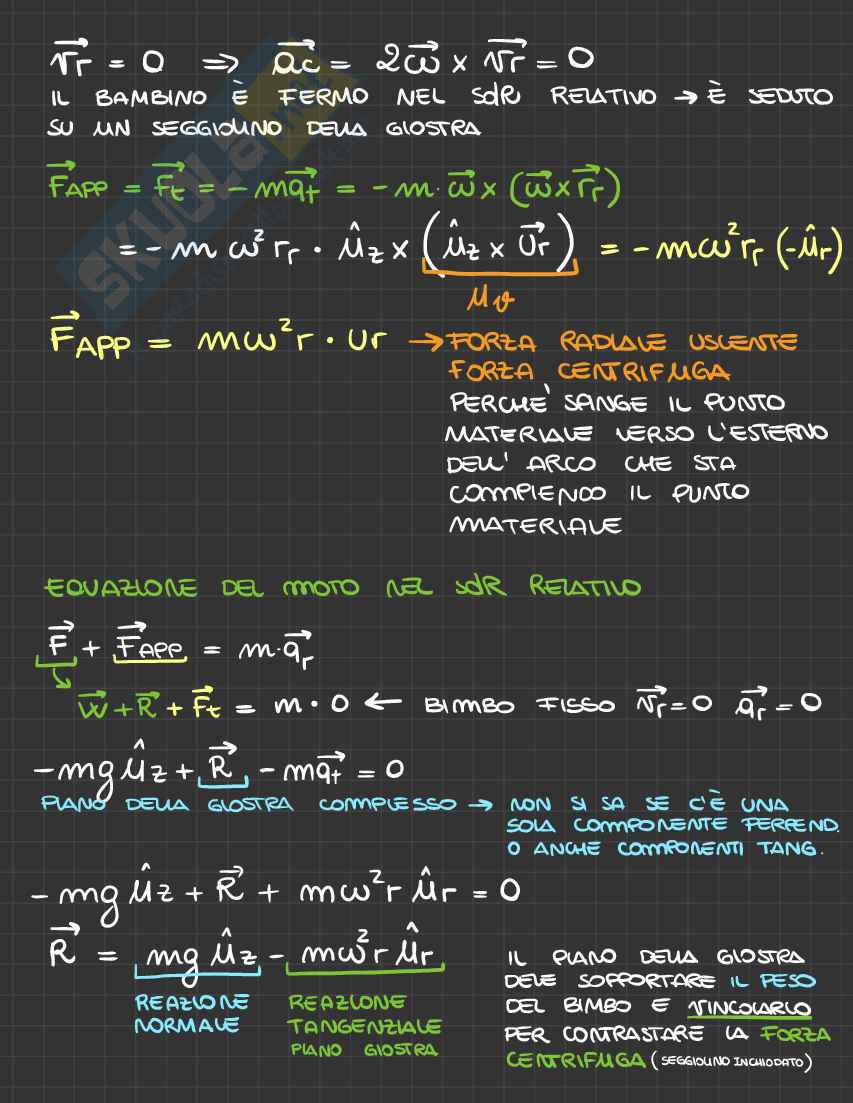 v⃗r = 0 ⇒ a⃗c = 2ω⃗ × v⃗r = 0
IL BAMBINO È FERMO NEL SdR RELATIVO → È SEDUTO
SU UN SEGGIOLINO DELLA GIOSTRA
F⃗APP = F⃗t = -ma⃗t = -m·ω⃗ × (ω⃗ × r⃗r)
= -m ω² rr · ûz × (ûz × U⃗r) = -mω²rr (-ûr)
uϑ
F⃗APP = mω²r · ur → FORZA RADIALE USCENTE
FORZA CENTRIFUGA
PERCHE' SANGE IL PUNTO
MATERIALE VERSO L'ESTERNO
DELL' ARCO CHE STA
COMPIENDO IL PUNTO
MATERIALE
EQUAZIONE DEL MOTO NEL SdR RELATIVO
F⃗ + F⃗APP = m·a⃗r
W⃗ + R⃗ + F⃗t = m · 0 ← BIMBO FISSO v⃗r = 0 a⃗r = 0
-mg ûz + R⃗ - ma⃗t = 0
PIANO DELLA GIOSTRA COMPLESSO → NON SI SA SE C'È UNA
SOLA COMPONENTE PERPEND.
O ANCHE COMPONENTI TANG.
-mg ûz + R⃗ + mω²r ûr = 0
R⃗ = mg ûz - mω²r ûr
REAZIONE
NORMALE
REAZIONE
TANGENZIALE
PIANO GIOSTRA
IL PIANO DELLA GIOSTRA
DEVE SOPPORTARE IL PESO
DEL BIMBO E VINCOLARLO
PER CONTRASTARE LA FORZA
CENTRIFUGA (SEGGIOLINO INCHIODATO)
SKUOLA.net